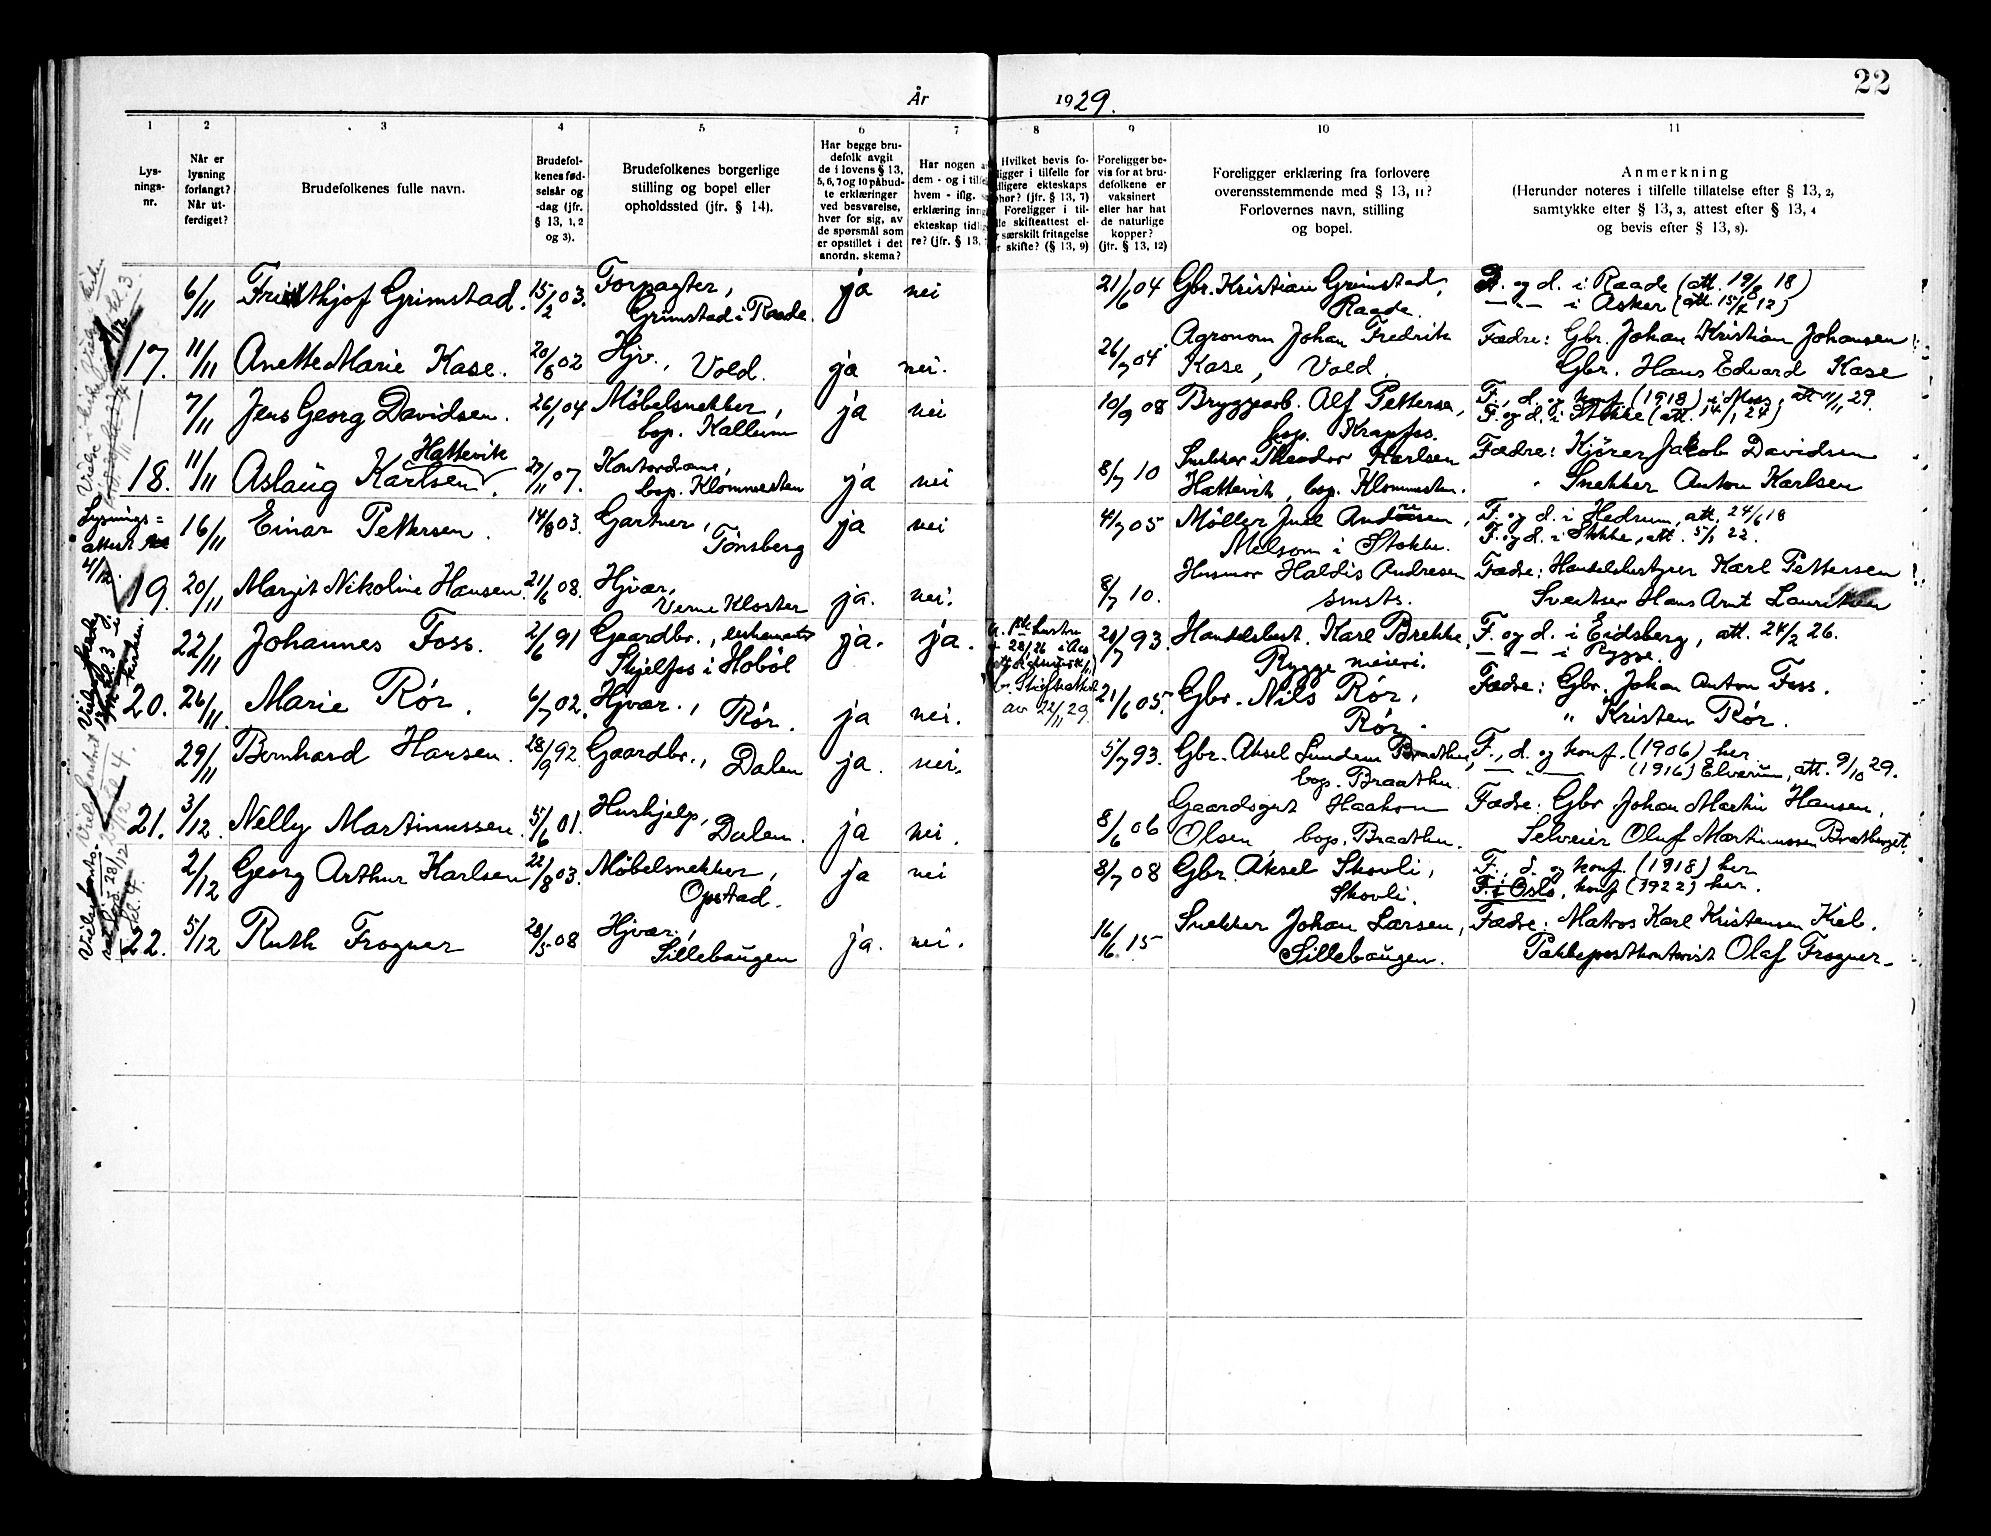 22
År 1929.
1 2 3 4 5 6 7 8 9 10 11
Lys-
nings-
nr.
Når er
lysning
forlangt?
Når ut-
ferdiget?
Brudefolkenes fulle navn.
Brudefol-
kenes fød-
selsår og
-dag (jfr.
§ 13, 1, 2
og 3).
Brudefolkenes borgerlige
stilling og bopel eller
opholdssted (jfr. § 14).
Har begge bru-
defolk avgit
de i lovens § 13,
5, 6, 7 og 10 påbud-
te erklæringer
ved besvarelse,
hver for sig, av
de spørsmål som
er opstillet i det
anordn. skema?
Har nogen
dem - og i
hvem - ifig.
erklæring
ekteskap
re? (jfr. § 13,
Hvilket bevis fo-
ligger i tilfelle for
ligere ekteskaps
hør? (jfr. § 13, 7)
Foreligger i til-
le skifteattest el-
særskilt fritagelse
skifte? (§ 13, 9)
Foreligger be-
vis for at bru-
defolkene er
vaksinert
eller har hat
de naturlige
kopper?
(jfr. § 13, 12)
Foreligger erklæring fra forlovere
overensstemmende med § 13, 11?
Forlovernes navn, stilling
og bopel.
Anmerkning
(Herunder noteres i tilfelle tillatelse efter § 13, 2,
samtykke efter § 13, 3, attest efter § 13, 4
og bevis efter § 13, 8).
6/11 Frithjof Grimstad. 15/2 03. Forpagter, ja nei 21/6 04 Gbr. Kristian Grimstad, F. og d. i Raade (att. 19/8 18)
Grimstad i Raade. Raade. — " — i Asker (att. 15/4 12)
17. 11/11 Anette Marie Kase. 20/8 02 Hjv., Vold. ja nei. 26/7 04 Agronom Johan Fredrik Fædre: Gbr. Johan Kristian Johansen
Kase, Vold. Gbr. Hans Edvard Kase
7/11 Jens Georg Davidsen. 26/1 04 Møbelsnekker, ja nei 10/9 08 Bryggearb. Alf Pettersen, F., d. og konf. (1918) i Moss, att. 11/11 29.
bop. Kallum bop. Krapfos. F. og d. i Stokke (att. 14/1 24)
18. 11/11 Aslaug Karlsen Hattevik 27/11 07. Kontordame, ja nei 8/7 10 Snekker Theodor Karlsen Fædre: Kjører Jakob Davidsen
bop. Klommesten Hattevik, bop. Klommesten. Snekker Anton Karlsen
Lysnings=
attest
4/12.
16/11 Einar Pettersen. 14/8 03. Gartner, ja nei 4/7 05 Møller Juel Andresen, F. og d. i Hedrum, att. 24/6 18
Tønsberg Melsom i Stokke. F. og d. i Stokke, att. 5/1 22.
19. 20/11 Margit Nikoline Hansen. 21/6 08. Hjvær, ja. nei. 8/7 10. Husmor Haldis Andresen Fædre: Handelsbestyrer Karl Pettersen
Verne Kloster smsts. Sveitser Hans Arnt Lauritsen
22/11 Johannes Foss. 2/6 91 Gaardbr., enkemand ja. ja. 20/7 93. Handelsbest. Karl Brekke, F. og d. i Eidsberg, att. 24/2 26.
Skjelfos i Hobøl Rygge meieri. — " — i Rygge.
b. Skifteattest
av 22/11 29.
20. 26/11 Marie Rør. 6/7 02. Hjvær., Rør. ja nei. 21/6 05. Gbr. Nils Rør, Fædre: Gbr. Johan Anton Foss.
Rør. " Kristen Rør.
29/11 Bernhard Hansen. 28/9 92 Gaardbr., Dalen ja. nei. 5/7 93. Gbr. Aksel Lundem Braathen, F., d. og konf. (1906) her
bop. Braathen. — " — (1916) Elverum, att. 9/10 29.
21. 3/12. Nelly Martinussen. 5/6 01. Hushjelp, Dalen. ja nei. 8/6 06 Gaardsgut Haakon Fædre: Gbr Johan Martin Hansen,
Olsen bop. Braathen. Selveier Oluf Martinussen Bratberget.
2/12 Georg Arthur Karlsen 22/8 03. Møbelsnekker, ja nei 8/7 08 Gbr. Aksel Skovli, F., d. og konf. (1918) her
Opstad. Skovli. F. i Oslo, konf. (1922) her.
22. 5/12 Ruth Frogner 28/5 08 Hjvær., ja. nei. 16/6 15 Snekker Johan Larsen, Fædre: Matros Karl Kristensen Kiel.
Sillebaugen Sillebaugen. Pakkepostkontorist Olaf Frogner.